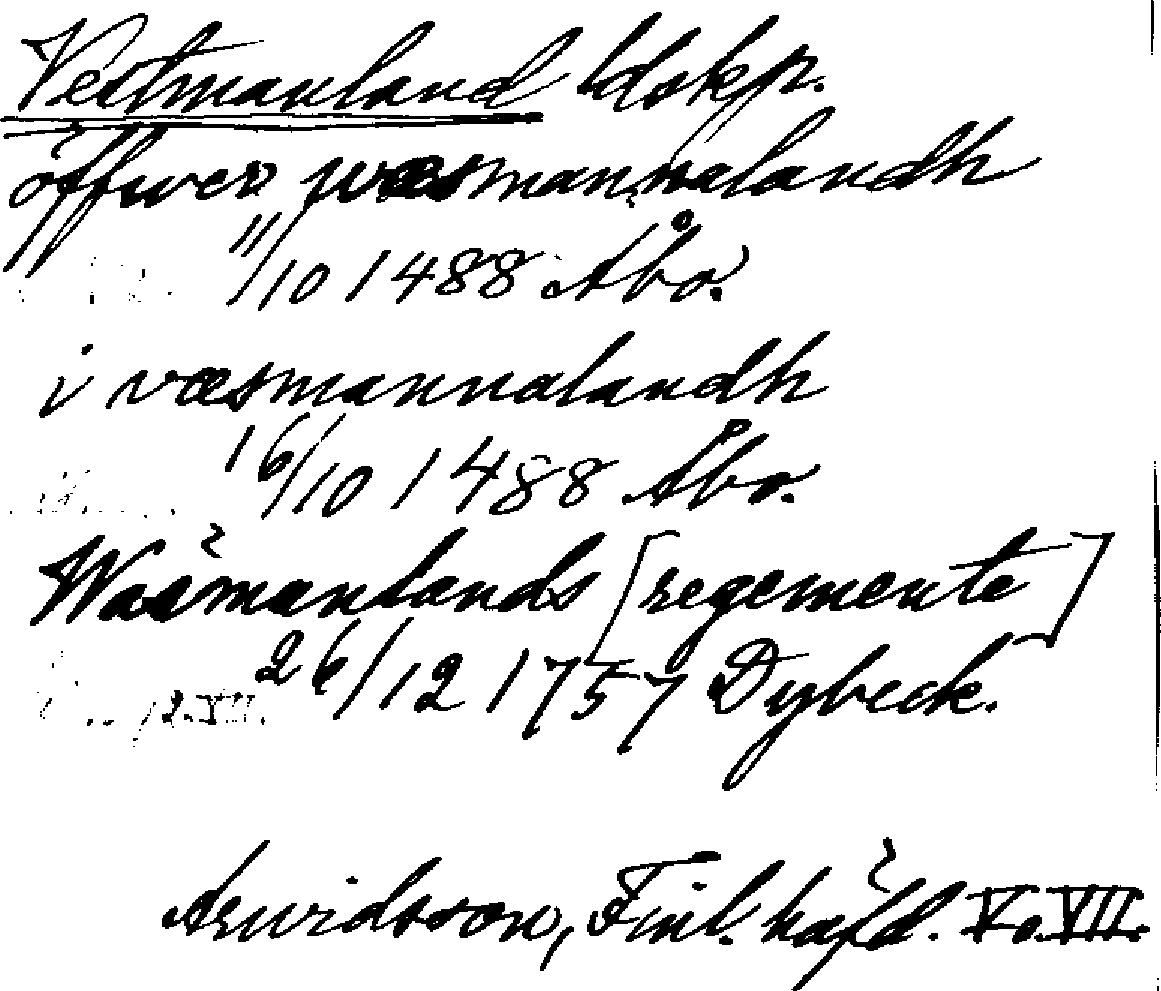 Vestmanland ldskp.
öffwer wæsmannalandh
11/10 1488 Åbo.
i væsmannalandh
16/10 1488 Åbo.
Wäsmanlands [regemente]
26/12 1757 Dybeck.
Arwidsson, Finl. häfd. V o. VII.